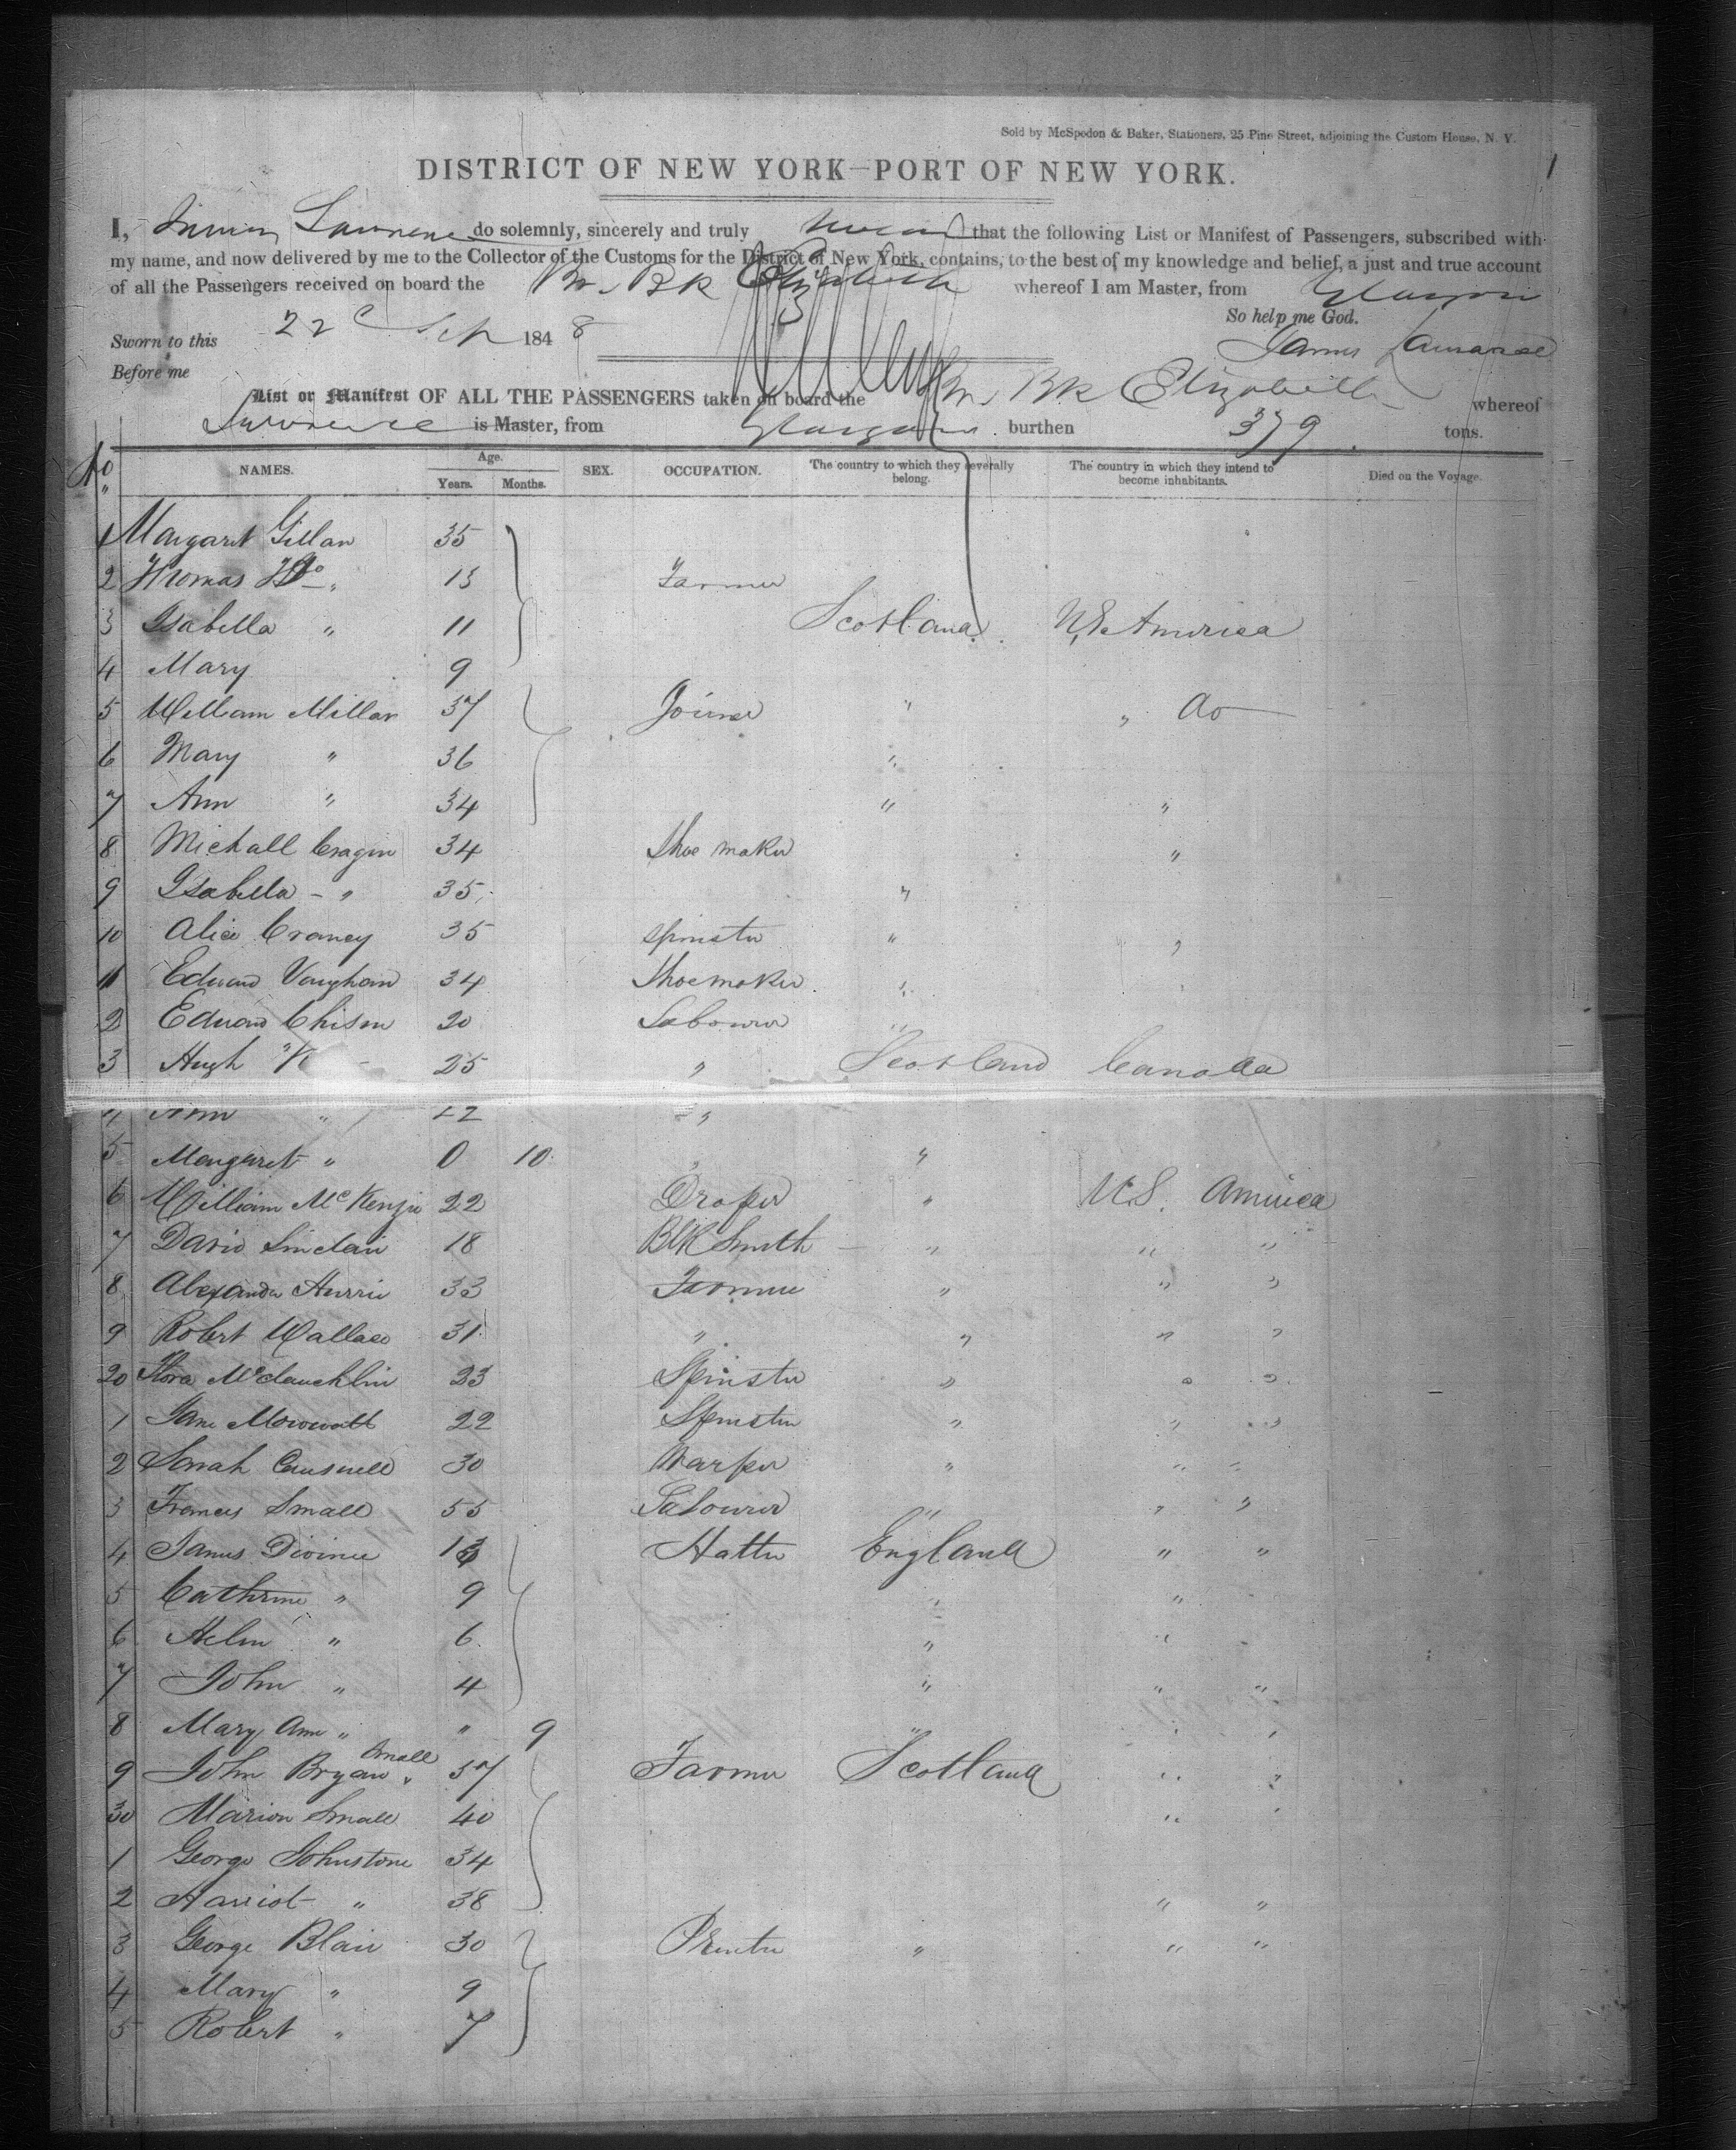 Sold by McSpedon & Baker, Stationers, 25 Pine Street, adjoining the Custom House, N. Y.
1
DISTRICT OF NEW YORK—PORT OF NEW YORK.
I, Lawrence do solemnly, sincerely and truly swear that the following List or Manifest of Passengers, subscribed with
my name, and now delivered by me to the Collector of the Customs for the District of New York, contains, to the best of my knowledge and belief, a just and true account
of all the Passengers received on board the Br. Bk Elizabeth whereof I am Master, from Glasgow
So help me God.
Sworn to this 22 Sep 1848
James Lawrence
Before me
List or Manifest OF ALL THE PASSENGERS taken on board the Br. Bk Elizabeth whereof
Lawrence is Master, from Glasgow burthen 379 tons.
No NAMES. Age. Years. Months. SEX. OCCUPATION. The country to which they severally belong. The country in which they intend to become inhabitants. Died on the Voyage.
1 Margaret Gillan 35
2 Thomas Do 13 Farmer
3 Isabella " 11 Scotland U.S. America
4 Mary 9
5 William Millar 37 Joiner " " do
6 Mary " 36 "
7 Ann " 34 " "
8 Michall Cragin 34 Shoe maker "
9 Isabella - " 35 "
10 Alice Craney 35 spinster " "
11 Edward Vaughan 34 Shoemaker "
2 Edward Chism 20 Labourer "
3 Hugh 25 " Scotland Canada
4 Ann " 22 "
5 Margaret " 0 10 " "
6 William McKenzie 22 Draper " U.S. America
7 David Sinclair 18 Blk Smith " " "
8 Alexander Harris 33 Farmer " " "
9 Robert Wallace 31 " " " "
20 Flora McLauchlin 23 Spinster " " "
1 Jane Mowwatt 22 Spinster " " "
2 Sarah 30 Warper " " "
3 Frances Small 55 Labourer " " "
4 James Divinee 13 Hatter England " "
5 Cathrine " 9 " "
6 Helen " 6 " " "
7 John " 4 " " "
8 Mary Ann " " 9 " " "
9 John Bryan Small 37 Farmer Scotland " "
30 Marion Small 40 " "
1 George Johnstone 34
2 Harriot " 38 " "
3 George Blair 30 Printer " " "
4 Mary " 9
5 Robert " 7